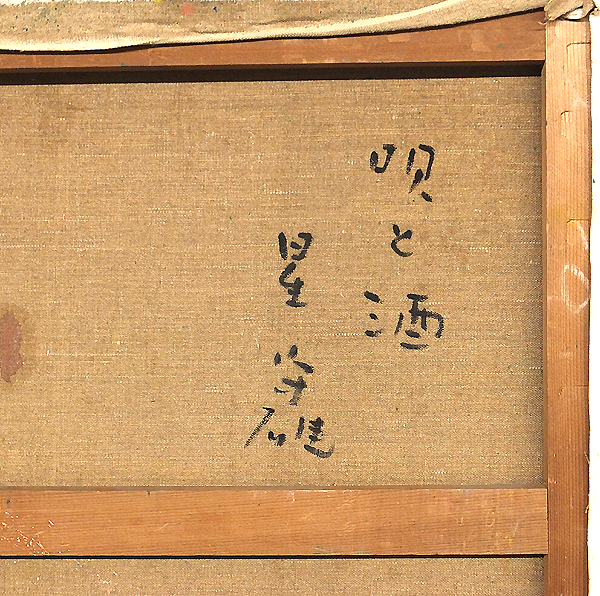 唄と酒
星守雄